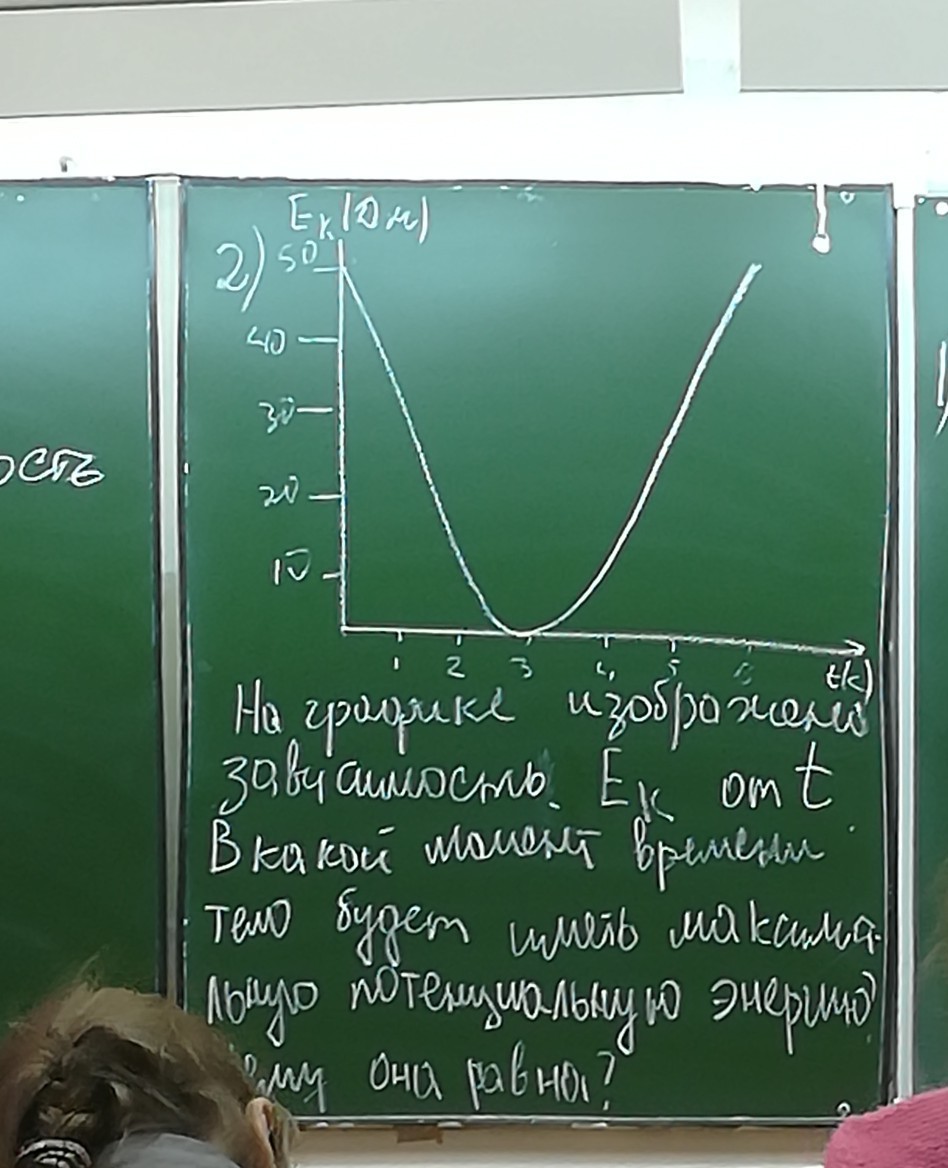 ость
Eк(Дж)
2)
50
40
30
20
10
1 2 3 4 5 6 t(c)
На графике изображено
зависимость Eк от t
В какой момент времени
тело будет иметь максима-
льную потенциальную энергию?
она равна?